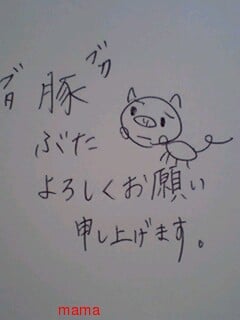 ブタ"豚"ブタ
ぶた
よろしくお願い
申し上げます。
mama